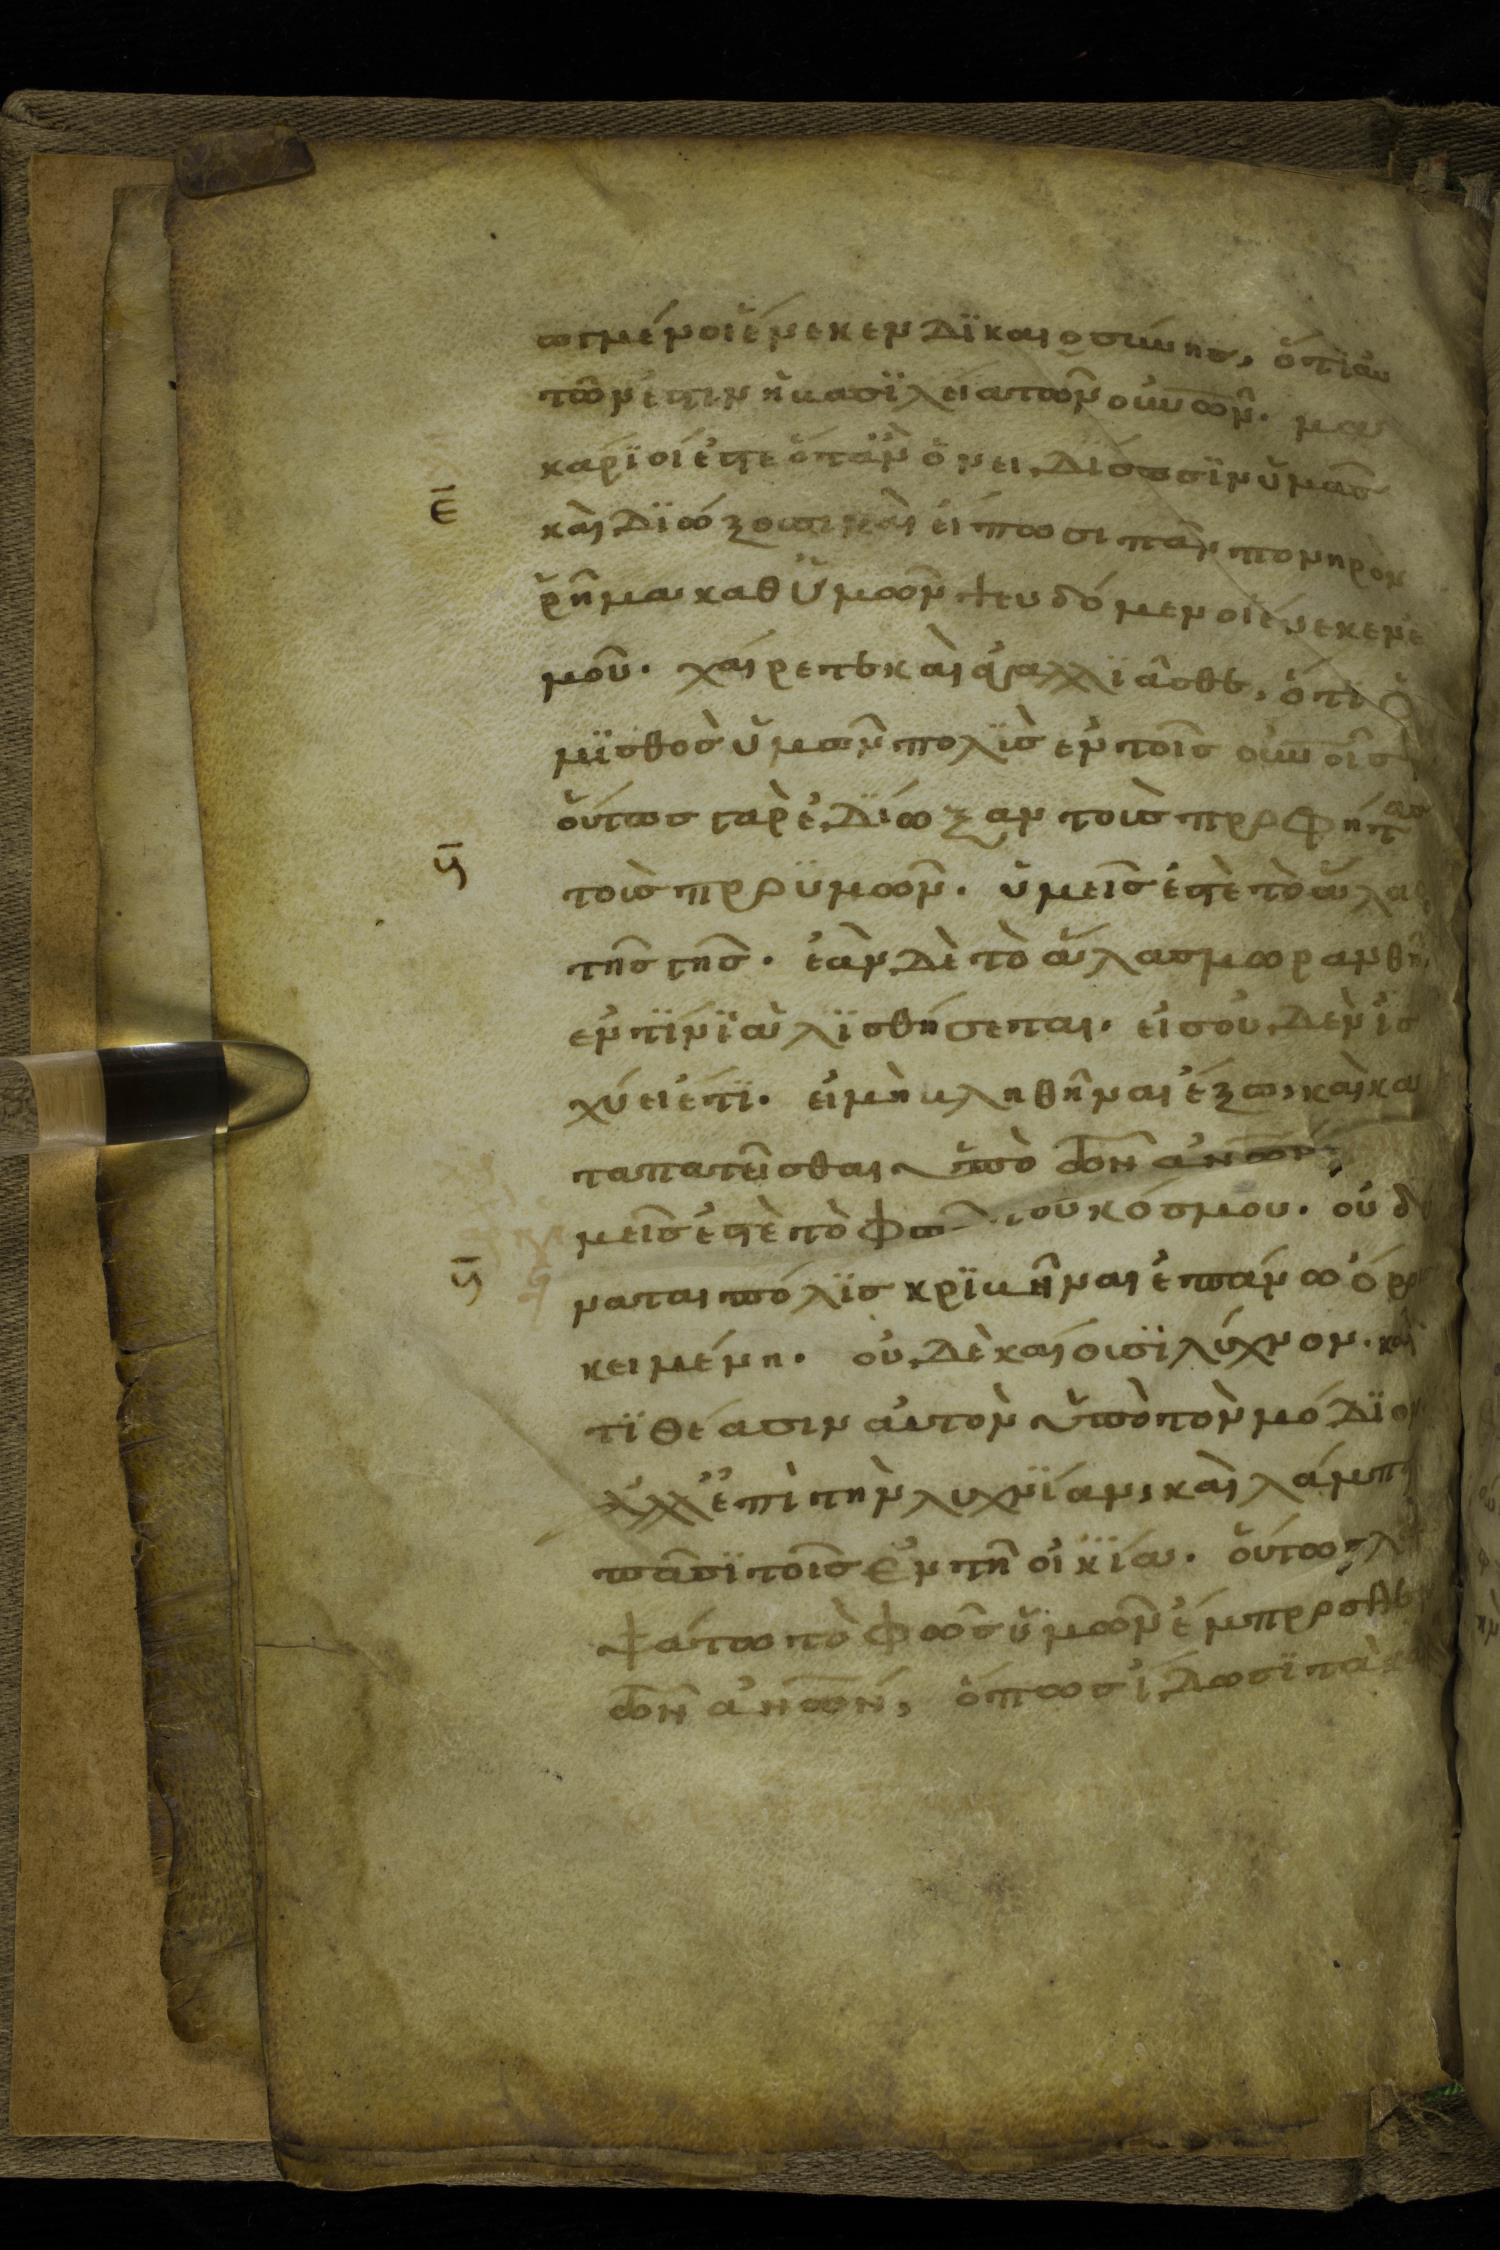 ωγμένοι ἕνεκεν δϊκαιοσύνης, ὅτι αυ
τῶν ἐστιν ἡ βασϊλεία τῶν οὐνῶν. μα
κάρϊοί ἐστε ὅταν ὀνειδίσωσϊν ὑμᾶσ
ε̄ καὶ δϊώξωσι καὶ εἴπωσι πᾶν πονηρὸν
ῥῆμα καθ ὑμῶν ψευδόμενοι ἕνεκεν ἐ
μοῦ. χαίρετε καὶ ἀγαλλϊᾶσθε, ὅτϊ ὁ
μϊσθὸσ ὑμῶν πολῒσ ἐν τοῖσ οὐνοῖσ
οὕτωσ γὰρ ἐδΐωξαν τοὺσ προφήτασ
ς̄ τοὺσ προ ὑμῶν. ὑμεῖσ ἐστὲ τὸ ἅλασ
τῆσ γῆσ. ἐὰν δὲ τὸ ἅλασ μωρανθῆ,
ἐν τΐνϊ ἁλϊσθήσεται. εἰσ οὐδὲν ἰσ
χύει ἔτϊ. εἰ μὴ βληθῆναι ἔξω, καὶ κα
ταπατεῖσθαι ὑπὸ τῶν ἀνῶν,
μεῖσ ἐστὲ τὸ φῶσ τοῦ κόσμου. οὐ δύ
ς̄ ναται πόλϊσ κρϊβῆναι ἐπάνω ὄρου
κειμένη. οὐδὲ καίουσϊ λύχνον. καὶ
τϊθέασιν αὐτὸν ὑπὸ τὸν μόδϊον
ἀλλ ἐπὶ τὴν λυχνΐαν, καὶ λάμπει
πᾶσϊ τοῖσ ἐν τῆ οἰκΐα. οὕτωσ λα
ψάτω τὸ φῶσ ὑμῶν ἔμπροσθε
τῶν ἀνῶν, ὅπωσ ἴδωσϊ τὰ κα